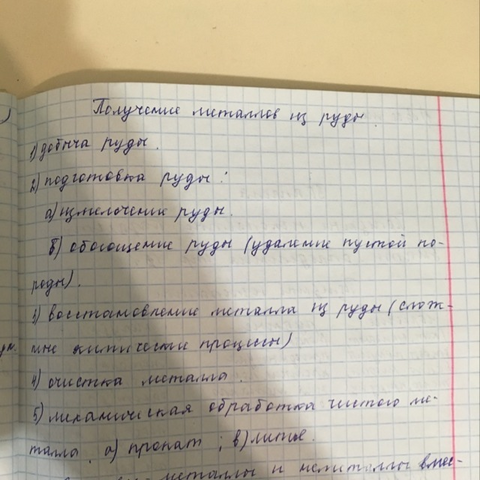 Получение металлов из руды.
1) добыча руды.
2) подготовка руды:
а) измелочение руды.
б) обогощение руды (удаление пустой по-
роды).
3) восстановление металла из руды (слож-
ные химически процесы)
4) очистка металла.
5) механическая обработка чистого ме-
талла, а) прокат; в) литье.
металлы и неметаллы вмес-